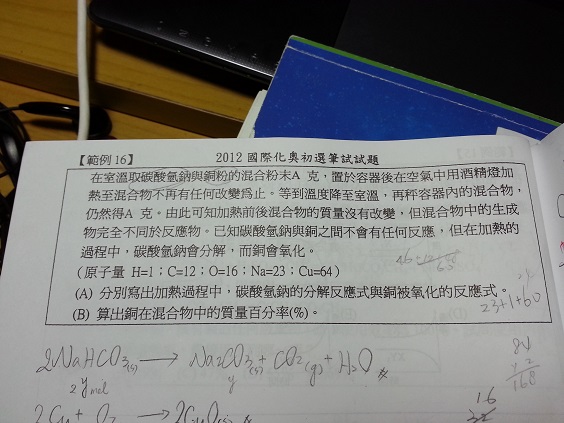 【範例 16】 2012 國際化奧初選筆試試題
在室溫取碳酸氫鈉與銅粉的混合粉末A 克，置於容器後在空氣中用酒精燈加
熱至混合物不再有任何改變為止。等到溫度降至室溫，再秤容器內的混合物，
仍然得A 克。由此可知加熱前後混合物的質量沒有改變，但混合物中的生成
物完全不同於反應物。已知碳酸氫鈉與銅之間不會有任何反應，但在加熱的
過程中，碳酸氫鈉會分解，而銅會氧化。
(原子量 H=1；C=12；O=16；Na=23；Cu=64)
(A) 分別寫出加熱過程中，碳酸氫鈉的分解反應式與銅被氧化的反應式。
23+1+60
(B) 算出銅在混合物中的質量百分率(%)。
2NaHCO3(s) → Na2CO3(s) + CO2(g) + H2O
2y mol y
84
x 2
168
16
32
2Cu + O2 → 2CuO(s)